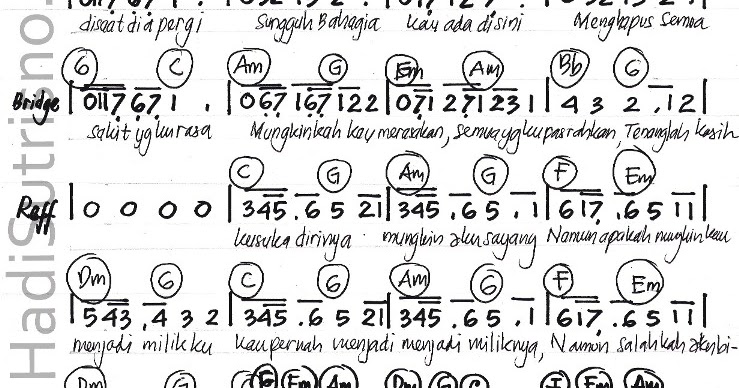 disaat dia pergi sungguh Bahagia kau ada disini Menghapus semua
G C Am G Em Am Bb G
Bridge | 0117 671 . | 067 167 122 | 071 271 231 | 4 3 2 .12 |
sakit yg kurasa Mungkinkah kau merasakan, semua yg ku pasrahkan, Tenanglah kasih
C G Am G F Em
Reff | 0 0 0 0 | 345 .6 5 21 | 345 .6 5 .1 | 617 .6 5 11 |
kusuka dirinya mungkin aku sayang Namun apakah mungkin kau
Dm G C G Am G F Em
| 543 .4 3 2 | 345 .6 5 21 | 345 .6 5 .1 | 617 .6 5 11 |
menjadi milikku kau pernah menjadi menjadi miliknya, Namun salahkah aku bi-
Dm G C G Em Am Dm G C F Em Am
HadiSutrisno.